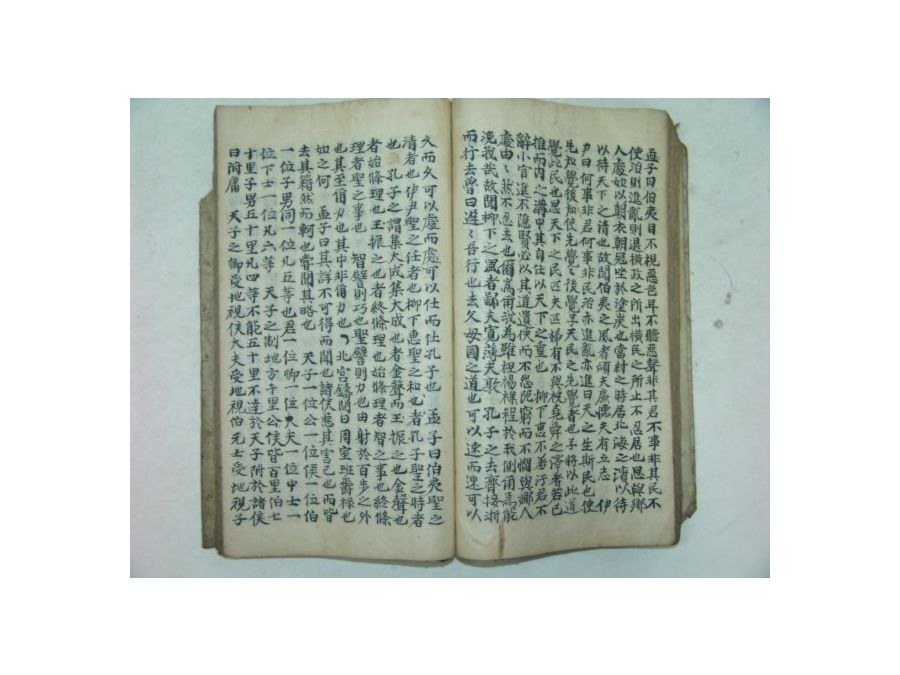 孟子曰伯夷目不視惡色耳不聽惡聲非其君不事非其民不
使治則進亂則退橫政之所出橫民之所止不忍居也思與鄉
人處如以朝衣朝冠坐於塗炭也當紂之時居北海之濱以待
以待天下之清也故聞伯夷之風者頑夫廉懦夫有立志 伊
尹曰何事非君何事非民治亦進亂亦進曰天之生斯民也使
先知覺後知使先覺〻後覺予天民之先覺者也予將以此道
覺此民也思天下之民匹夫匹婦有不與被堯舜之澤者若己
推而內之溝中其自任以天下之重也 柳下惠不羞汙君不
辭小官進不隱賢必以其道遺佚而不怨阨窮而不憫與鄉人
處由〻然不忍去也爾爲爾我爲我雖袒裼裸裎於我側爾焉能
浼我哉故聞柳下之風者鄙夫寬薄夫敦 孔子之去齊接淅
而行去魯曰遲〻吾行也去父母國之道也可以速而速可以
久而久可以處而處可以仕而仕孔子也 孟子曰伯夷聖之
清者也伊尹聖之任者也柳下惠聖之和也者孔子聖之時者
也 孔子之謂集大成集大成也者金聲而玉振之也金聲也
者始條理也玉振之也者終條理也始條理者智之事也終條
理者聖之事也 智譬則巧也聖譬則力也由射於百步之外
也其至爾力也其中非爾力也 北宮錡問曰周室班爵祿也
如之何 孟子曰其詳不可得而聞也諸侯惡其害己也而皆
去其籍然而軻也嘗聞其略也 天子一位公一位侯一位伯
一位子男同一位凡五等也君一位卿一位大夫一位中士一
位下士一位凡六等 天子之制地方千里公侯皆百里伯七
十里子男五十里凡四等不能五十里不達於天子附於諸侯
曰附庸 天子之卿受地視侯大夫受地視伯元士受地視子